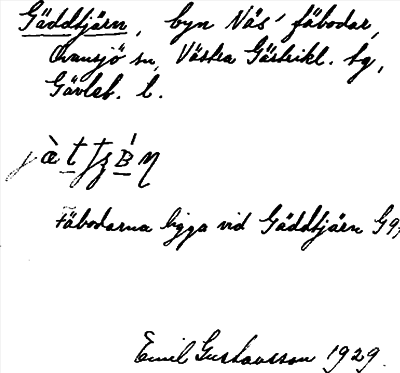 Gäddtjärn, byn Nås' fäbodar,
Ovansjö sn, Västra Gästrikl. tg,
Gävleb. l.
Fäbodarna ligga vid Gäddtjärn
Emil Gustavsson 1929.